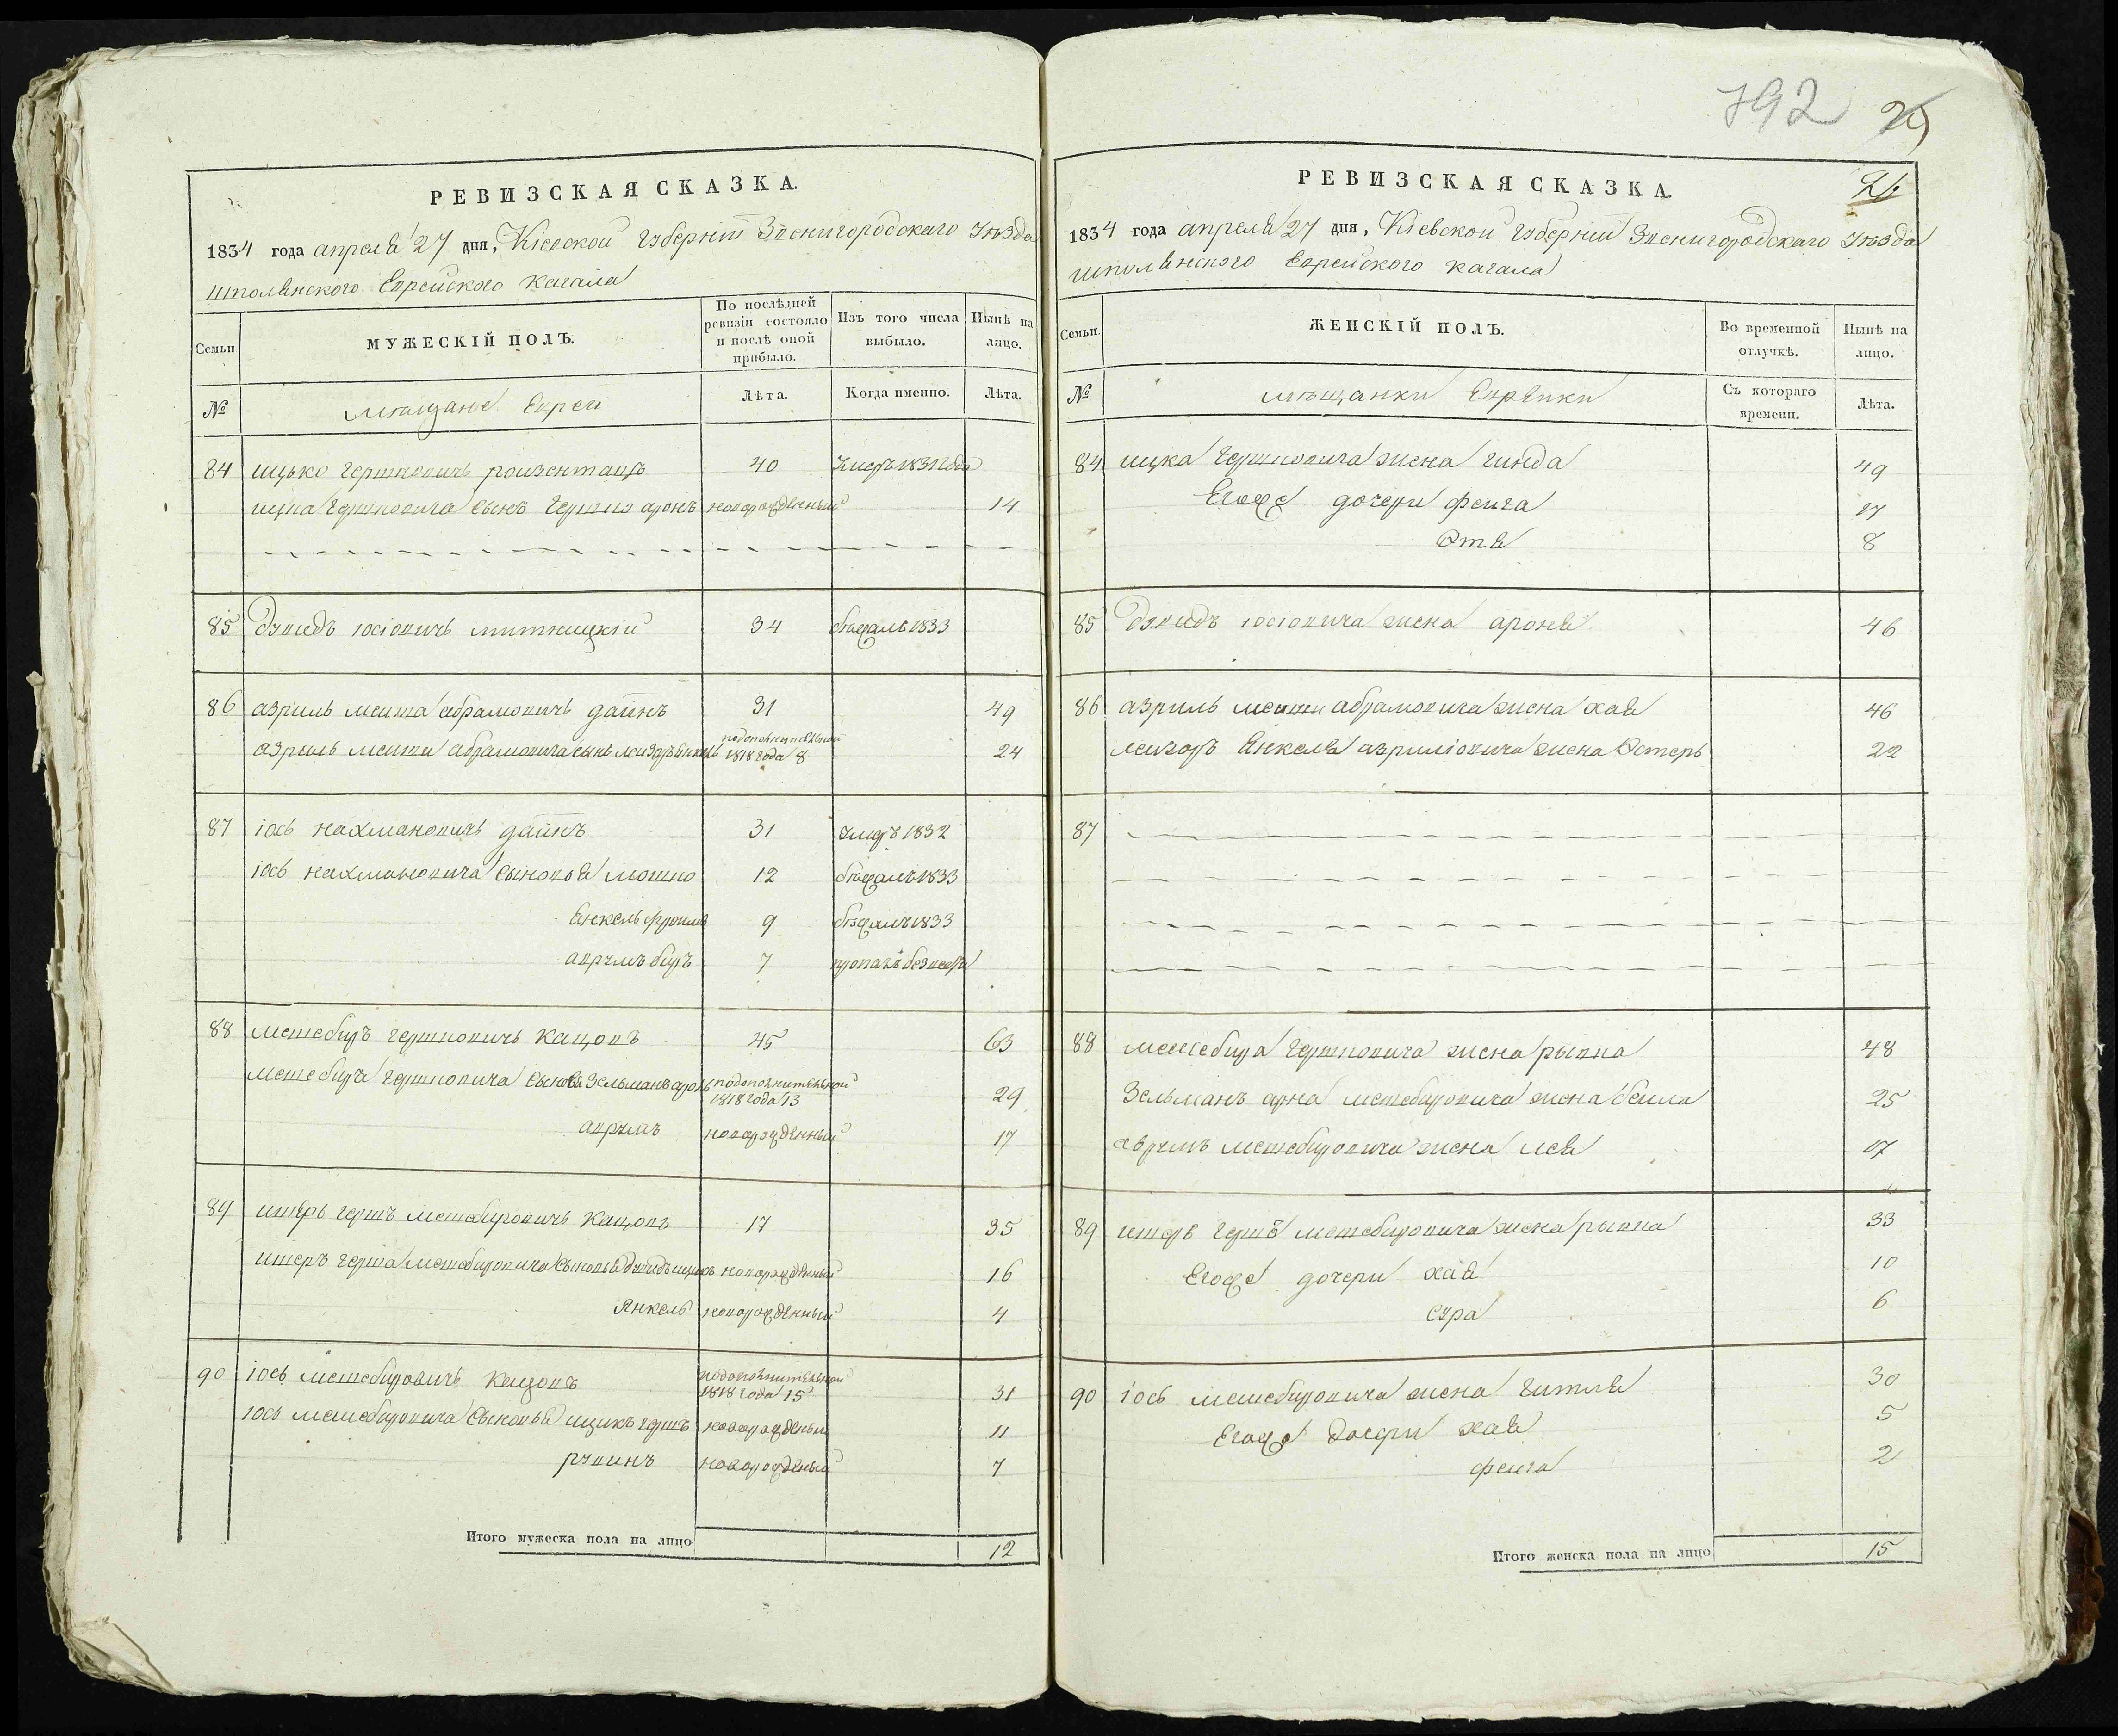 РЕВИЗСКАЯ СКАЗКА.
1834 года апреля 27 дня, Кіевской губерніи Звенигородскаго Уѣзда
шполянского Еврейского кагала
Семьи
МУЖЕСКІЙ ПОЛЪ.
По послѣдней ревизіи состояло и послѣ оной прибыло.
Изъ того числа выбыло.
Нынѣ на лицо.
№
мѣщане Евреи
Лѣта.
Когда именно.
Лѣта.
84 ицько гершковичъ 40 умеръ 1831 года
ицка гершковича сынъ гершко аронъ новорожденный 14
85 дувидъ юсіовичъ митницкій 34 бѣжалъ 1833
86 азриль мешта абрамовичъ даинъ 31 49
азриль абрамовича сынъ подополнительной 1818 года 8 24
87 іось нахмановичъ даинъ 31 умеръ 1832
іось нахмановича сыновья мошко 12 бѣжалъ 1833
Янкель фроимъ 9 бѣжалъ 1833
аврумъ беръ 7 пропалъ безвести
88 мешебиръ гершковичъ кацовъ 45 63
мешебира гершковича сыновья Зельманъ аронъ подополнительной 1818 года 13 29
аврумъ новорожденный 17
89 гершъ мешебировичъ кацовъ 17 35
герша мешебировича сыновья дувидъ ицикъ новорожденный 16
Янкель новорожденный 4
90 іось мешебировичъ кацовъ подополнительной 1818 года 15 31
іось мешебировича сыновья ицикъ гершъ новорожденный 11
рувинъ новорожденный 7
Итого мужеска пола на лицо 12
792
24
РЕВИЗСКАЯ СКАЗКА.
1834 года апреля 27 дня, Кіевской губерніи Звенигородскаго Уѣзда
шполянского Еврейского кагала
Семьи.
ЖЕНСКІЙ ПОЛЪ.
Во временной отлучкѣ.
Нынѣ на лицо.
№
мѣщанки Еврейки
Съ котораго времени.
Лѣта.
84 ицка гершковича жена гинда 49
Егоже дочери феига 17
Отя 8
85 дувидъ юсіовича жена ароня 46
86 азриль абрамовича жена хая 46
Янкеля азриліовича жена Эстеръ 22
87
88 мешебира гершковича жена рывка 48
Зельманъ арна мешебировича жена беила 25
аврумъ мешебировича жена лея 17
89 мешебировича жена рывка 33
Егоже дочери хая 10
сура 6
90 іось мешебировича жена гитля 30
Егоже дочери хая 5
феига 2
Итого женска пола на лицо 15